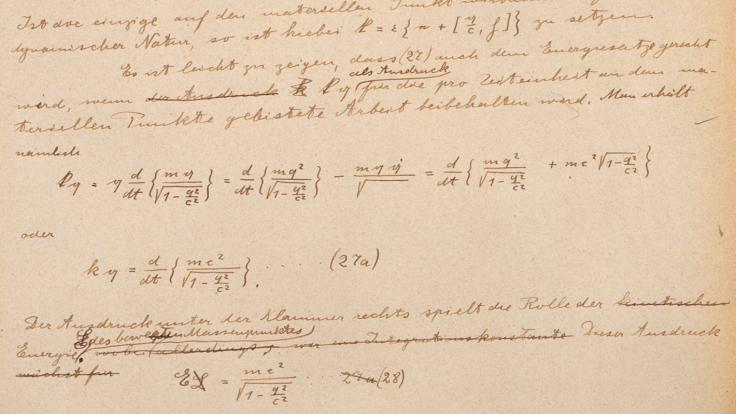 Ist die einzige auf den materiellen Punkt
dynamischer Natur, so ist hiebei k = ε{n + [q/c, f]} zu setzen.
Es ist leicht zu zeigen, dass (27) auch dem Energiesatze gerecht
als Ausdruck
wird, wenn der Ausdruck k q für die pro Zeiteinheit an dem ma-
teriellen Punkte geleistete Arbeit beibehalten wird. Man erhält
nämlich
k q = q d/dt { m q / √(1 - q²/c²) } = d/dt { m q² / √(1 - q²/c²) } - m q q̇ / √ = d/dt { m q² / √(1 - q²/c²) + m c² √(1 - q²/c²) }
oder
k q = d/dt { m c² / √(1 - q²/c²) } . . . . . (27a)
Der Ausdruck unter der Klammer rechts spielt die Rolle der kinetischen
E des bewegten Massenpunktes
Energie, wobei (allerdings), war eine Integrationskonstante Dieser Ausdruck
wächst für
E L = m c² / √(1 - q²/c²) . . 27a (28)